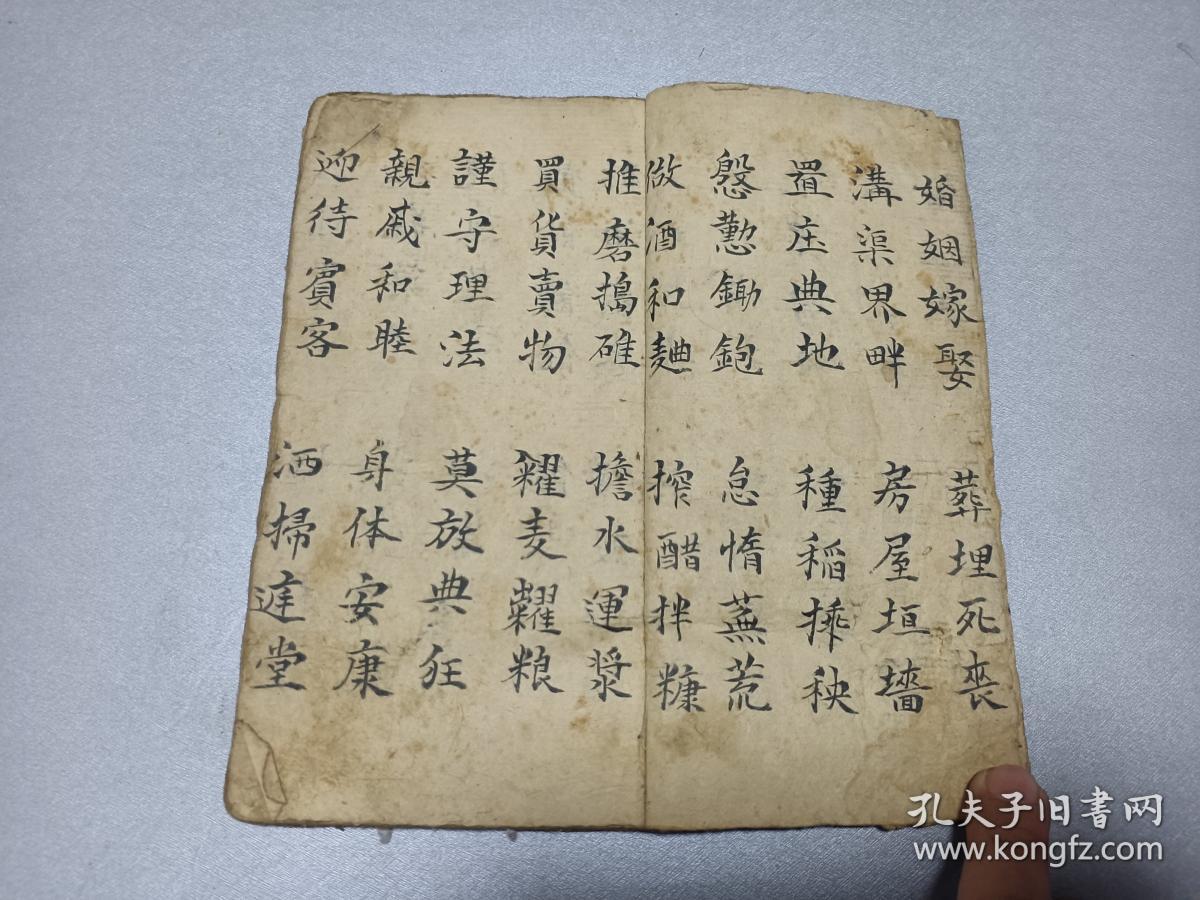 婚姻嫁娶 葬埋死喪
溝渠界畔 房屋垣墻
置庄典地 種稻揷秧
慇懃鋤鉋 怠惰蕪荒
做酒和麯 搾醋拌糠
推磨搗碓 擔水運漿
買貨賣物 糶麦糴粮
謹守理法 莫放典狂
親戚和睦 身体安康
迎待賓客 洒掃庭堂
孔夫子旧书网
www.kongfz.com